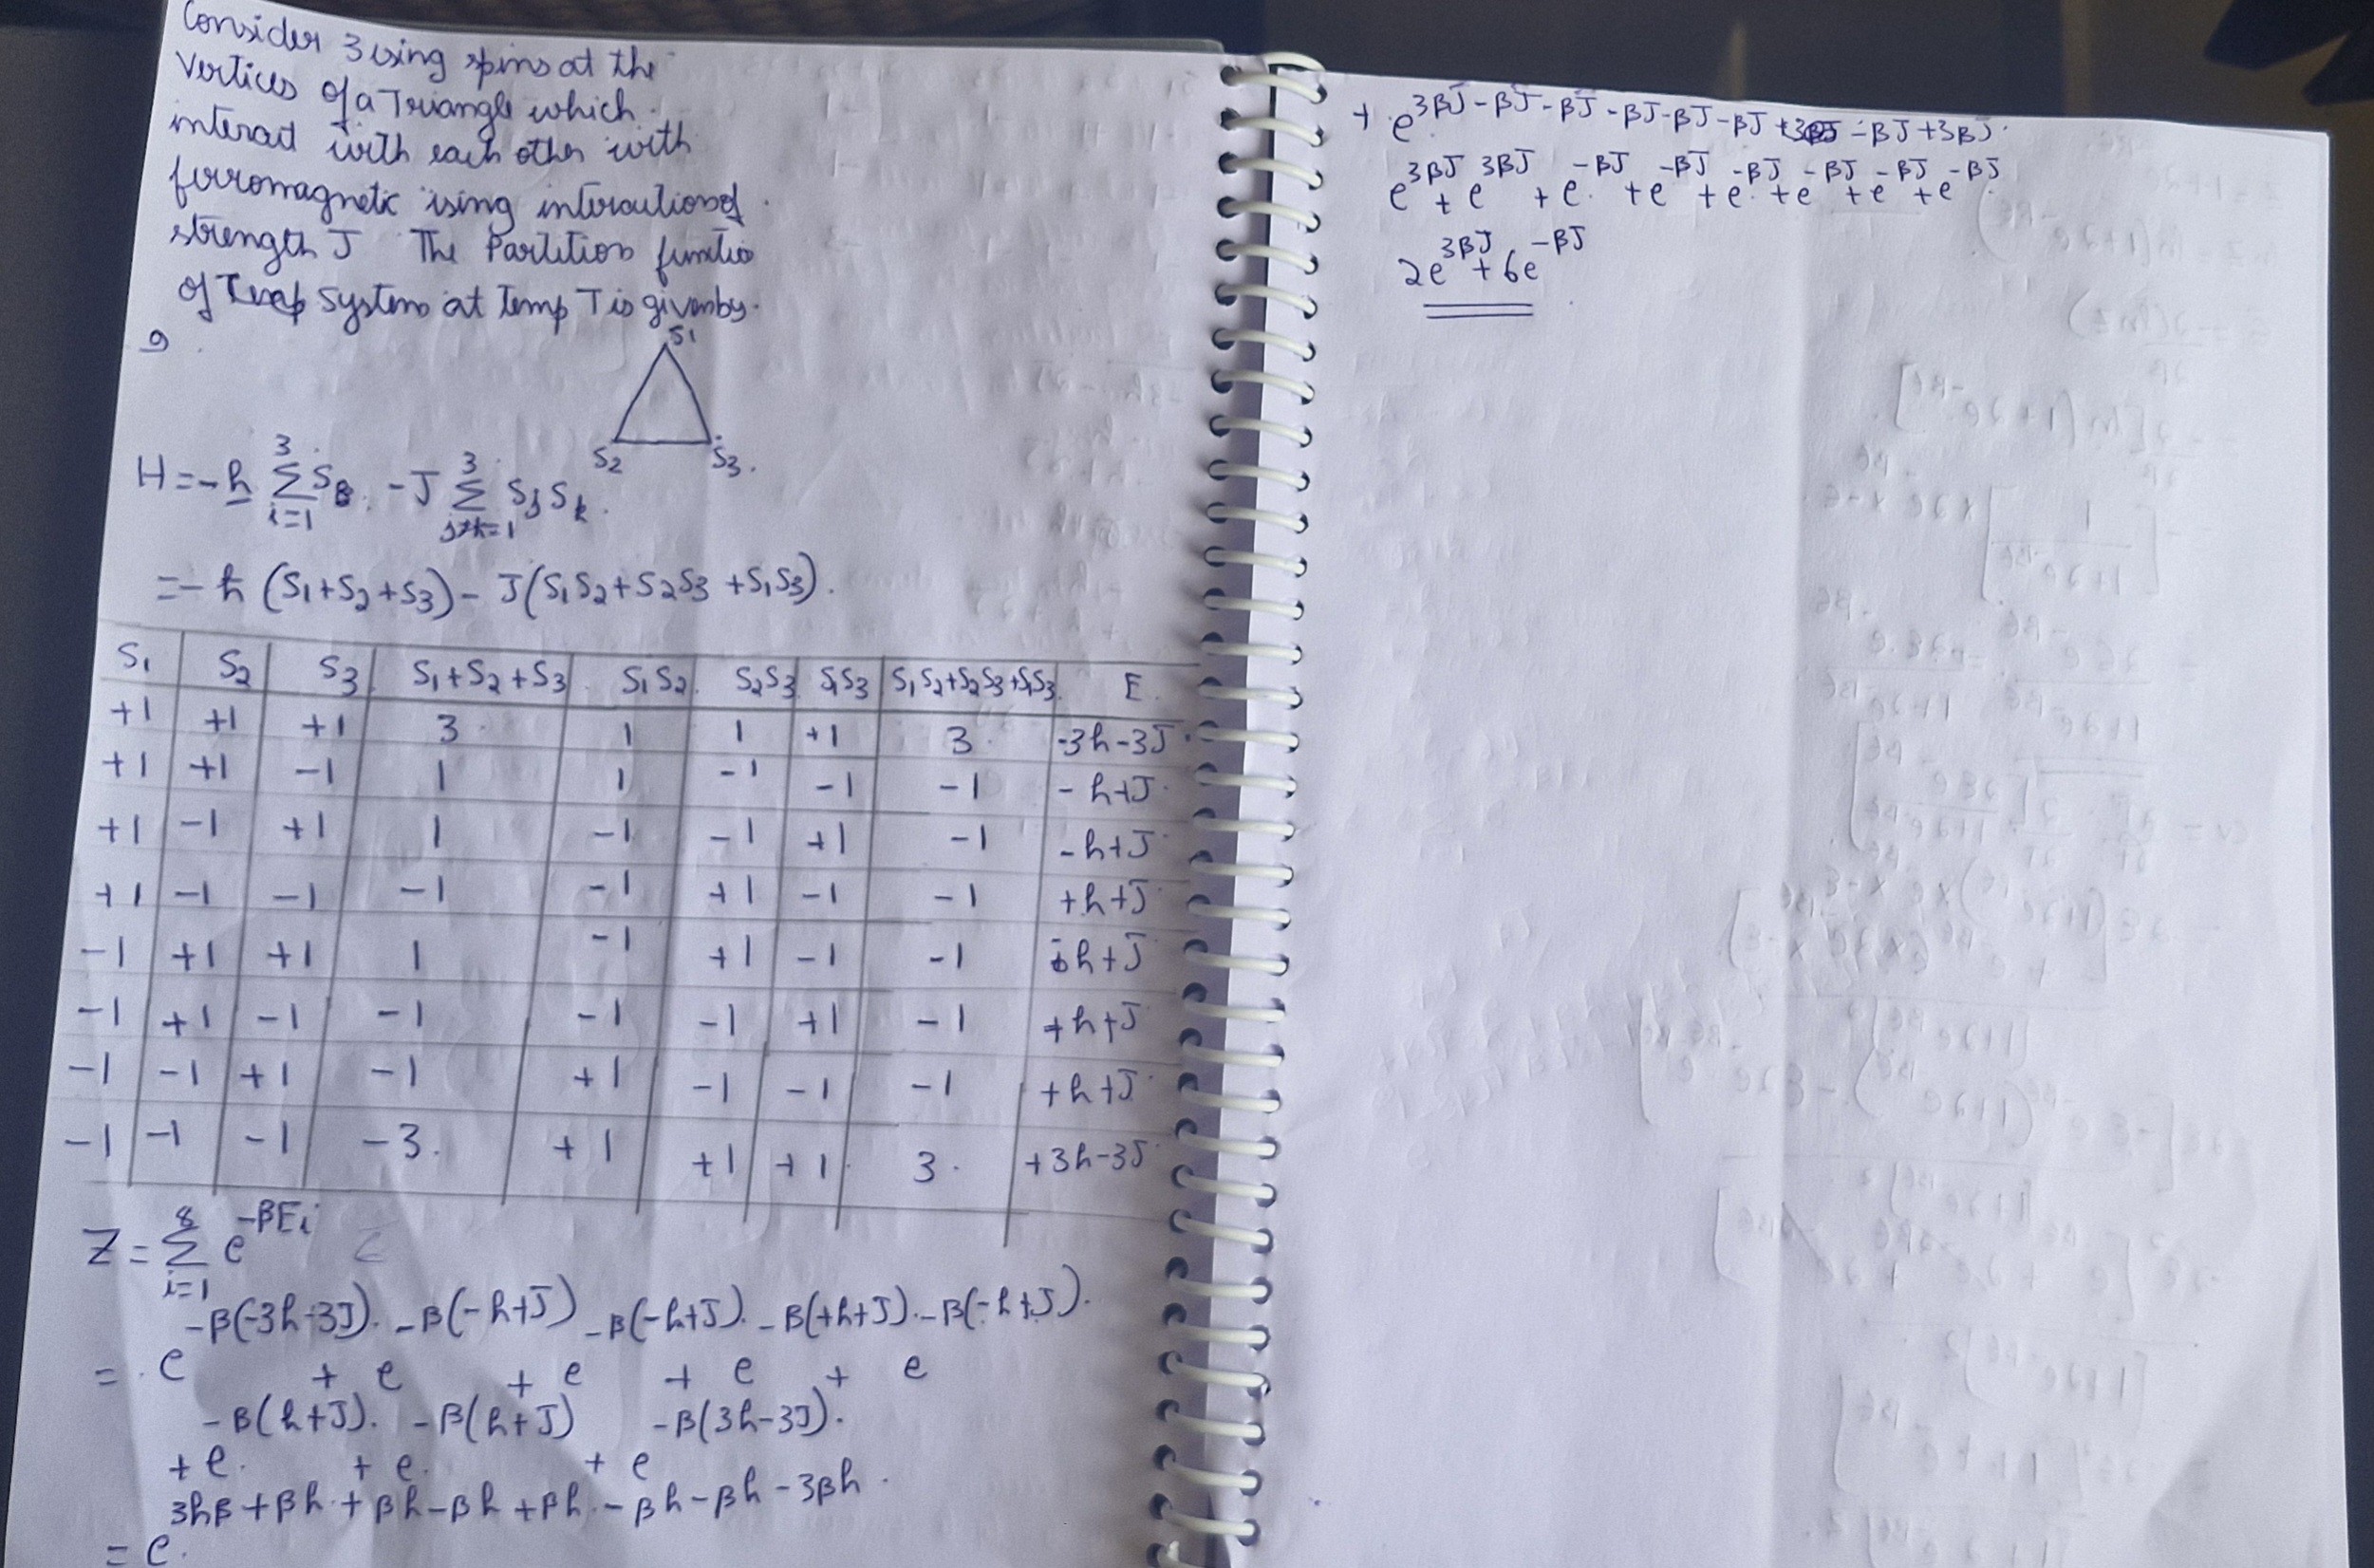 Consider 3 ising spins at the
Vertices of a Triangle which
interact with each other with
ferromagnetic ising interactions of
strength J The Partition functio
of System at temp T is given by.
S1
S2 S3.
H = -h 3 Σ i=1 S - J 3 Σ j≠k=1 Sj Sk.
= -h (S1+S2+S3) - J(S1S2+S2S3+S1S3).
S1 S2 S3 S1+S2+S3 S1S2 S2S3 S1S3 S1S2+S2S3+S1S3 E.
+1 +1 +1 3 1 1 +1 3 -3h-3J
+1 +1 -1 1 1 -1 -1 -1 -h+J
+1 -1 +1 1 -1 -1 +1 -1 -h+J
+1 -1 -1 -1 -1 +1 -1 -1 +h+J
-1 +1 +1 1 -1 +1 -1 -1 -h+J
-1 +1 -1 -1 -1 -1 +1 -1 +h+J
-1 -1 +1 -1 +1 -1 -1 -1 +h+J
-1 -1 -1 -3 +1 +1 +1 3 +3h-3J
Z = 8 Σ i=1 e -βEi
-β(-3h-3J) -β(-h+J) -β(-h+J) -β(+h+J) -β(-h+J)
= e + e + e + e + e
-β(h+J) -β(h+J) -β(3h-3J)
+ e + e + e
3hβ+βh+βh-βh+βh-βh-βh-3βh
= e
+ e 3βJ-βJ-βJ-βJ-βJ-βJ -βJ+3βJ
e 3βJ + e 3βJ + e -βJ + e -βJ + e -βJ + e -βJ + e -βJ + e -βJ
2e 3βJ + 6e -βJ